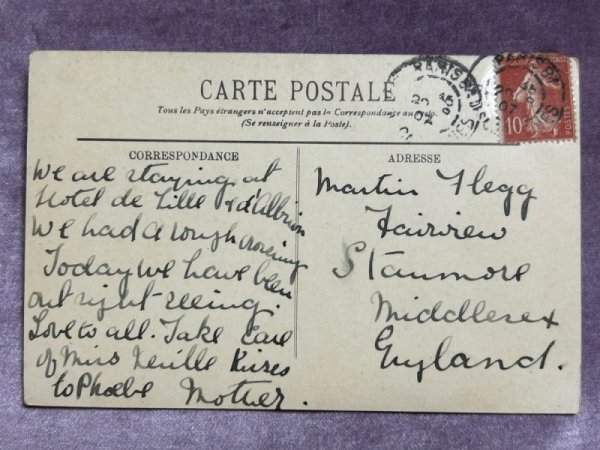 CARTE POSTALE
Tous les Pays étrangers n'acceptent pas la Correspondance au
(Se renseigner à la Poste)
CORRESPONDANCE
We are staying at
Hotel de Lille & d'Albion
We had a rough crossing
Today we have been
out sight seeing.
Love to all. Take Care
of Miss Neville Kisses
to Phoebe Mother.
ADRESSE
Martin Flegg
Fairview
Stanmore
Middlesex
England.
PARIS
10c
POSTES